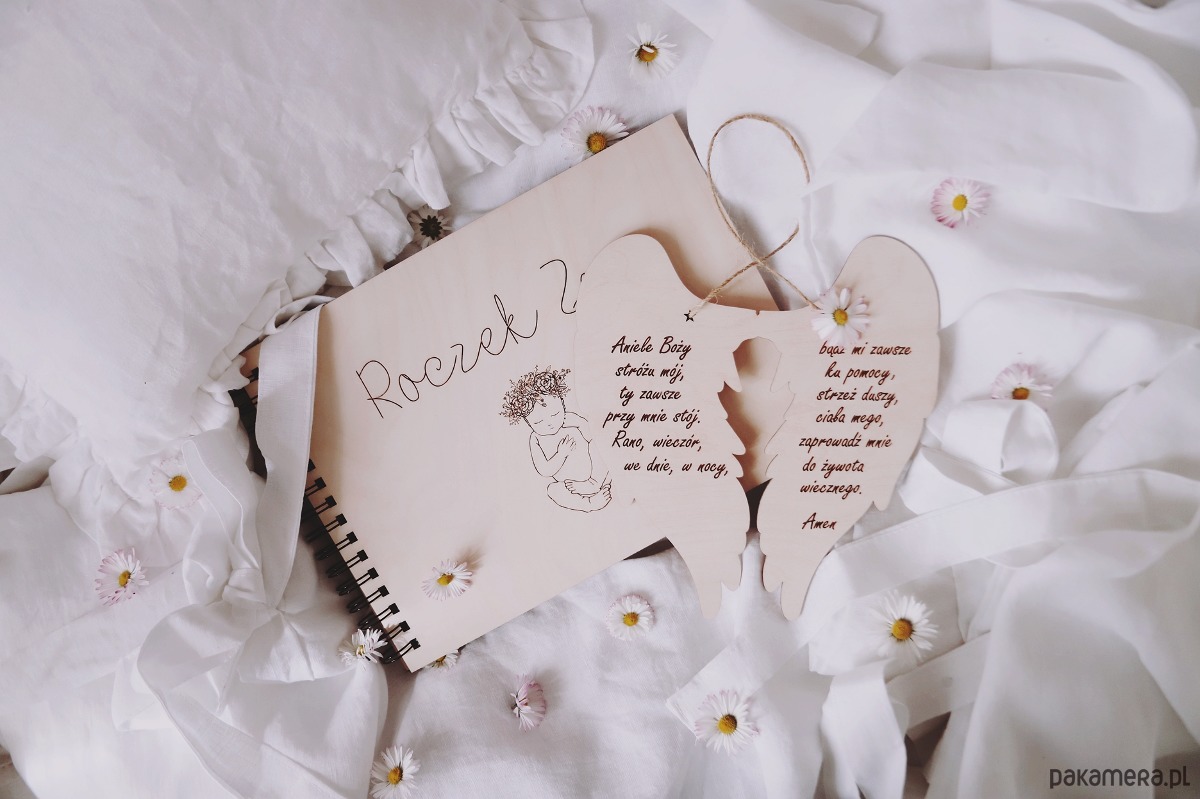 Roczek
Aniele Boży
stróżu mój,
ty zawsze
przy mnie stój.
Rano, wieczór,
we dnie, w nocy,
bądź mi zawsze
ku pomocy,
strzeż duszy,
ciała mego,
zaprowadź mnie
do żywota
wiecznego.
Amen
pakamera.pl